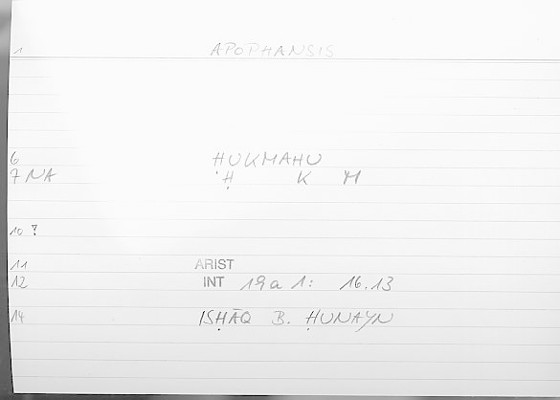 1 APOPHANSIS
6 ḤUKMAHU
7 NA Ḥ K M
10 ?
11 ARIST
12 INT 19a 1: 16.13
14 ISḤĀQ B. ḤUNAYN